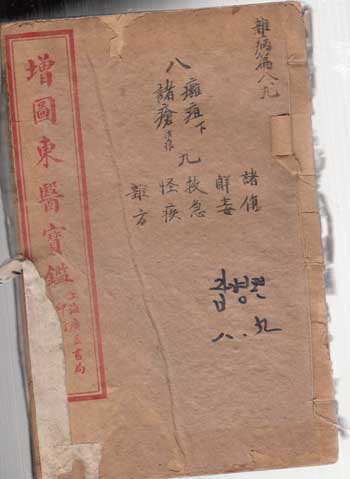 雜病篇八九
八
癰疽下
諸瘡
九
諸傷
解毒
救急
怪疾
雜方
八.九
增圖東醫寶鑑
上海廣益書局
印